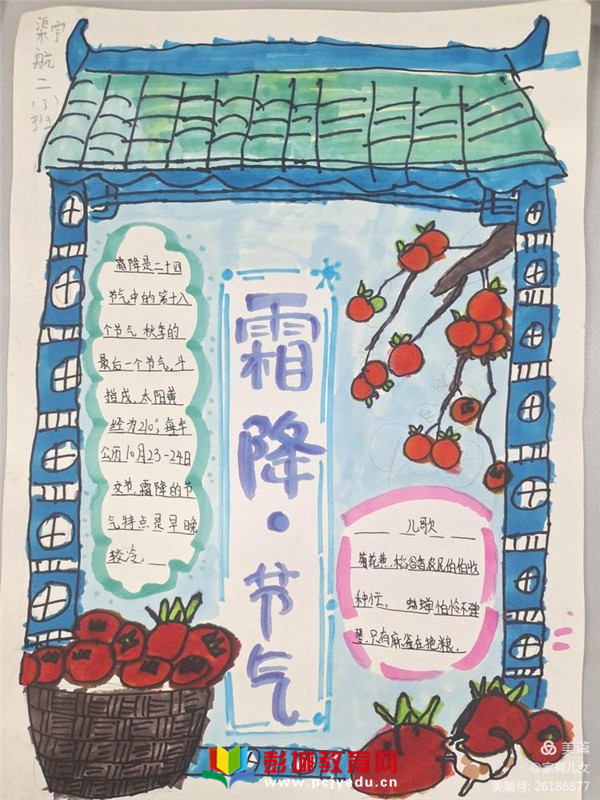 宇航二(3)班
霜降是二十四
节气中的第十八
个节气 秋季的
最后一个节气,斗
指戌,太阳黄
经为210°,每年
公历10月23-24日
交节,霜降的节
气特点是早晚
较冷。
霜降·节气
儿歌
菊花黄,稻谷香,农民伯伯收
种忙。
只有麻雀在
彭诚教育网
www.pcjyedu.cn
美篇
@家有儿女
美篇号: 26186877